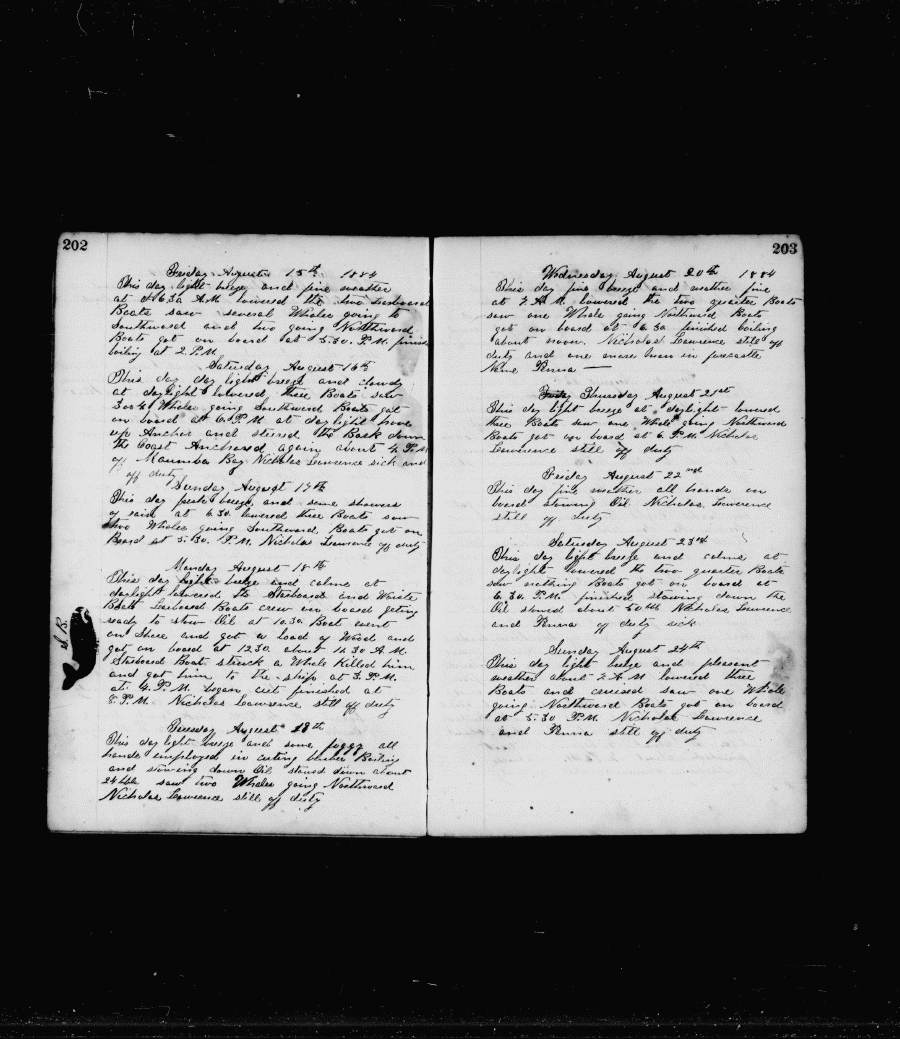 202
Friday August 15th 1884
This day light breeze and fine weather
at 6.30 A.M. lowered the two Larboard
Boats saw several Whales going to
Southward and two going Northward
Boats got on board at 5.30. P.M. finish
boiling at 2 P.M.
Saturday August 16th
This day day light breeze and cloudy
at daylight lowered three Boats saw
Whales going Southward Boats got
on board at 6 P.M. at daylight hove
up Anchor and steered the Bark down
the Coast Anchored again about 4 P.M.
off Mayumba Bay Nicholas Lawrence sick and
off duty
Sunday August 17th
This day fresh breeze and some showers
of rain at 6.30 lowered three Boats saw
two Whales going Southward Boats got on
Board at 5.30. P.M. Nicholas Lawrence off duty
Monday August 18th
This day light breeze and calms at
daylight lowered the Starboard and Waiste
Boats Larboard Boats crew on board geting
ready to stow Oil at 10.30 Boat went
on Shore and got a load of Wood and
got on board at 12.30. about 11.30 A.M.
Starboard Boat struck a Whale Killed him
and got him to the ship at 3. P.M.
at 4. P.M. began cut finished at
8. P.M. Nicholas Lawrence still off duty
S.B.
Tuesday August 19th
This day light breeze and some foggy all
hands employed in cuting blubber Boiling
and stowing down Oil stowed down about
24 bbls saw two Whales going Northward
Nicholas Lawrence still off duty
203
Wednesday August 20th 1884
This day fine breeze and weather fine
at 7. A.M. lowered the two quarter Boats
saw one Whale going Northward Boats
got on board at 6.30 finished boiling
about noon. Nicholas Lawrence still off
duty and one more man in forecastle
Name Penna
Friday Thursday August 21st
This day light breeze at daylight lowered
three Boats saw one Whale going Northward
Boats got on board at 6. P.M. Nicholas
Lawrence still off duty
Friday August 22nd
This day fine weather all hands on
board stowing Oil. Nicholas Lawrence
still off duty
Saturday August 23rd
This day light breeze and calms at
daylight lowered the two quarter Boats
saw nothing Boats got on board at
6.30. P.M. finished stowing down the
Oil stowed about 50 bbls Nicholas Lawrence
and Penna off duty sick
Sunday August 24th
This day light breeze and pleasant
weather about 7. A.M lowered three
Boats and cruised saw one Whale
going Northward Boats got on board
at 5.30 P.M. Nicholas Lawrence
and Penna still off duty